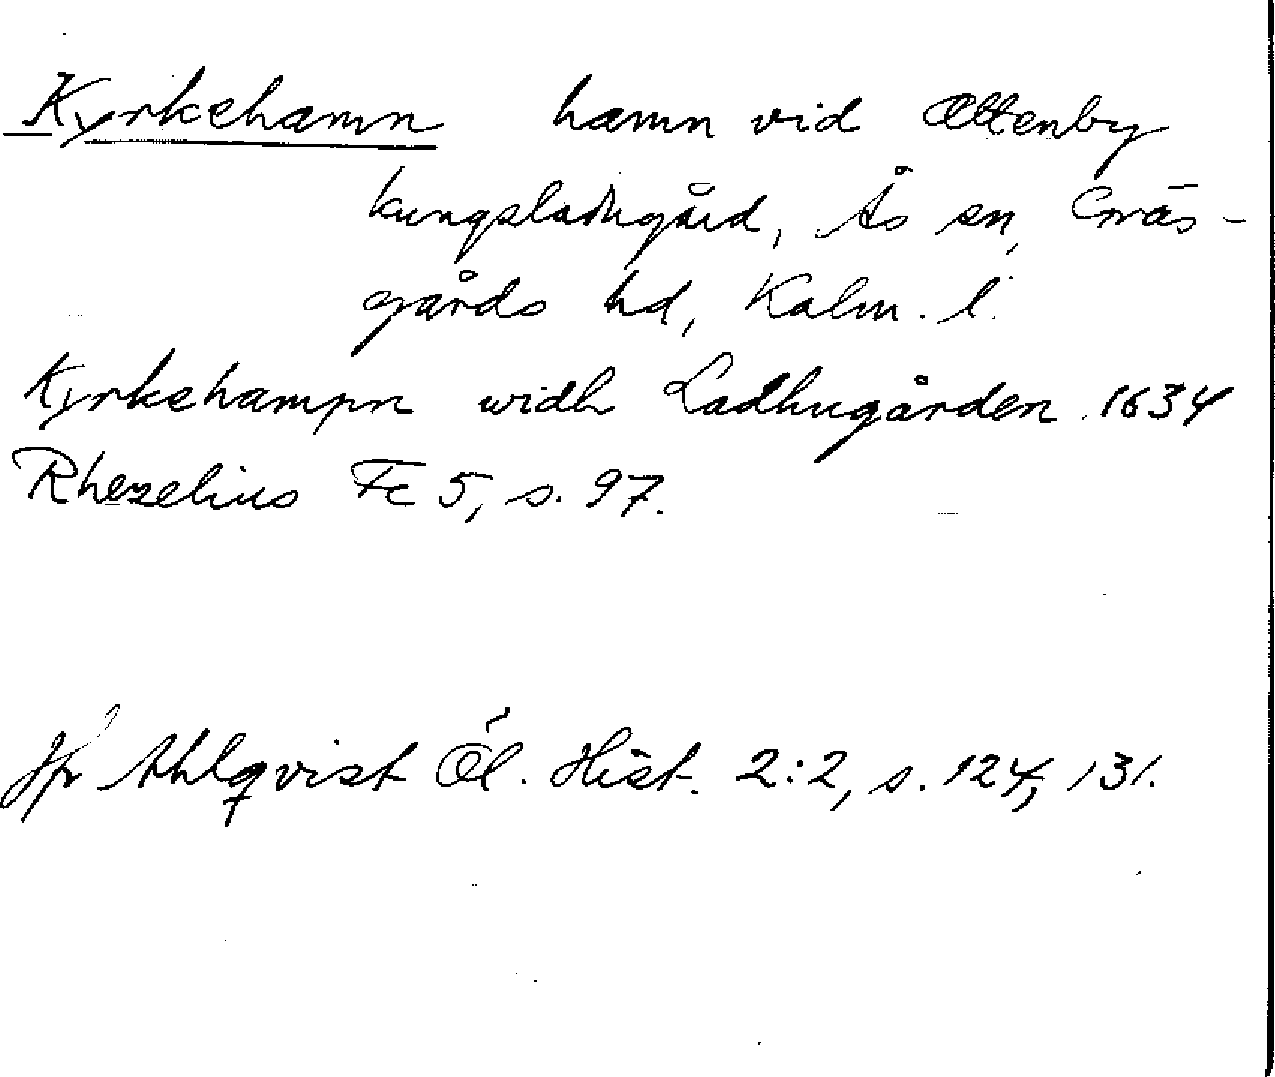 Kyrkehamn hamn vid Ottenby
kungsladugård, Ås sn, Gräs-
gårds hd, Kalm. l.
Kyrkehampn widh Ladhugården 1634
Rhezelius Fc 5, s. 97.
Jfr Ahlqvist Öl. Hist. 2:2, s. 124, 131.